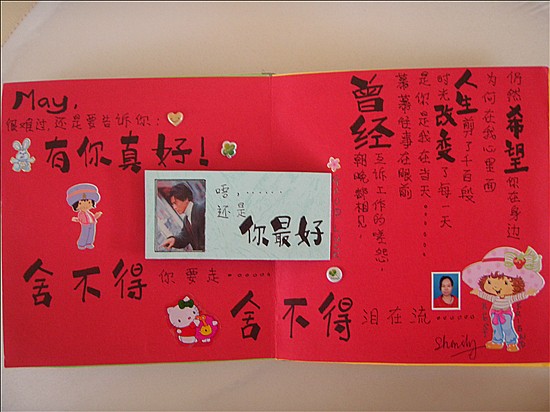 May,
很难过,还是要告诉你:
有你真好!
还是
你最好
舍不得你要走......
舍不得泪在流......
仍然希望你在身边
为何在我心里面
人生剪了千百段
时光改变了每一天
是你是我在当天......
幕幕往事在眼前
曾经互诉工作的嗟怨,
朝晚都相见,
Shmily